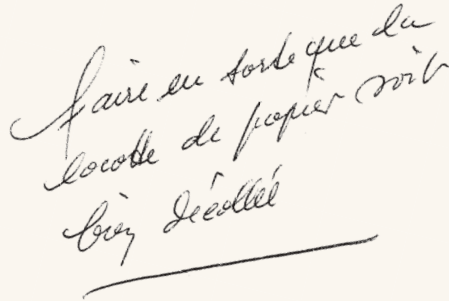 faire en sorte que la
cocotte de papier soit
bien décollée